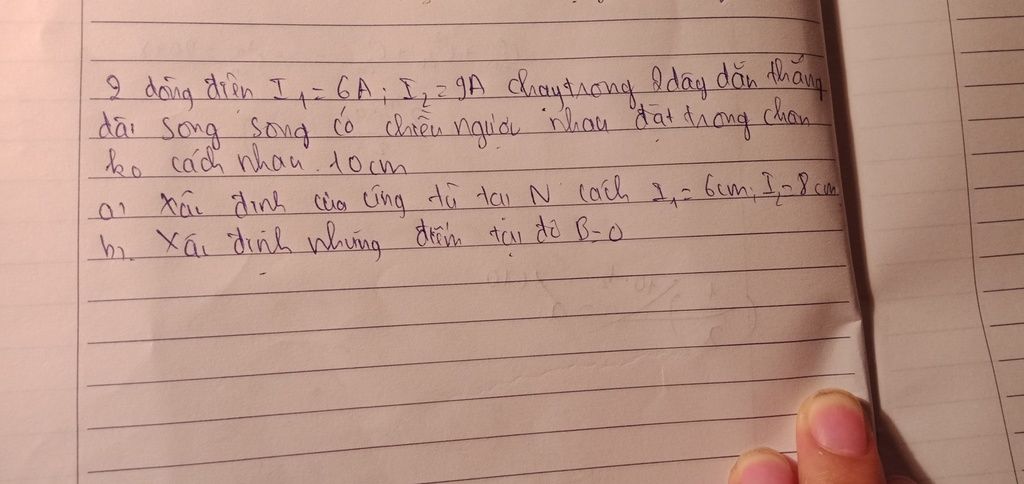 2 dòng điện I₁ = 6A; I₂ = 9A chạy trong 2 dây dẫn thẳng
dài song song có chiều ngược nhau đặt trong chân
ko cách nhau 10cm
a, Xác định của ứng từ tại N cách I₁ = 6cm; I₂ = 8cm
b, Xác định những điểm tại đó B=0